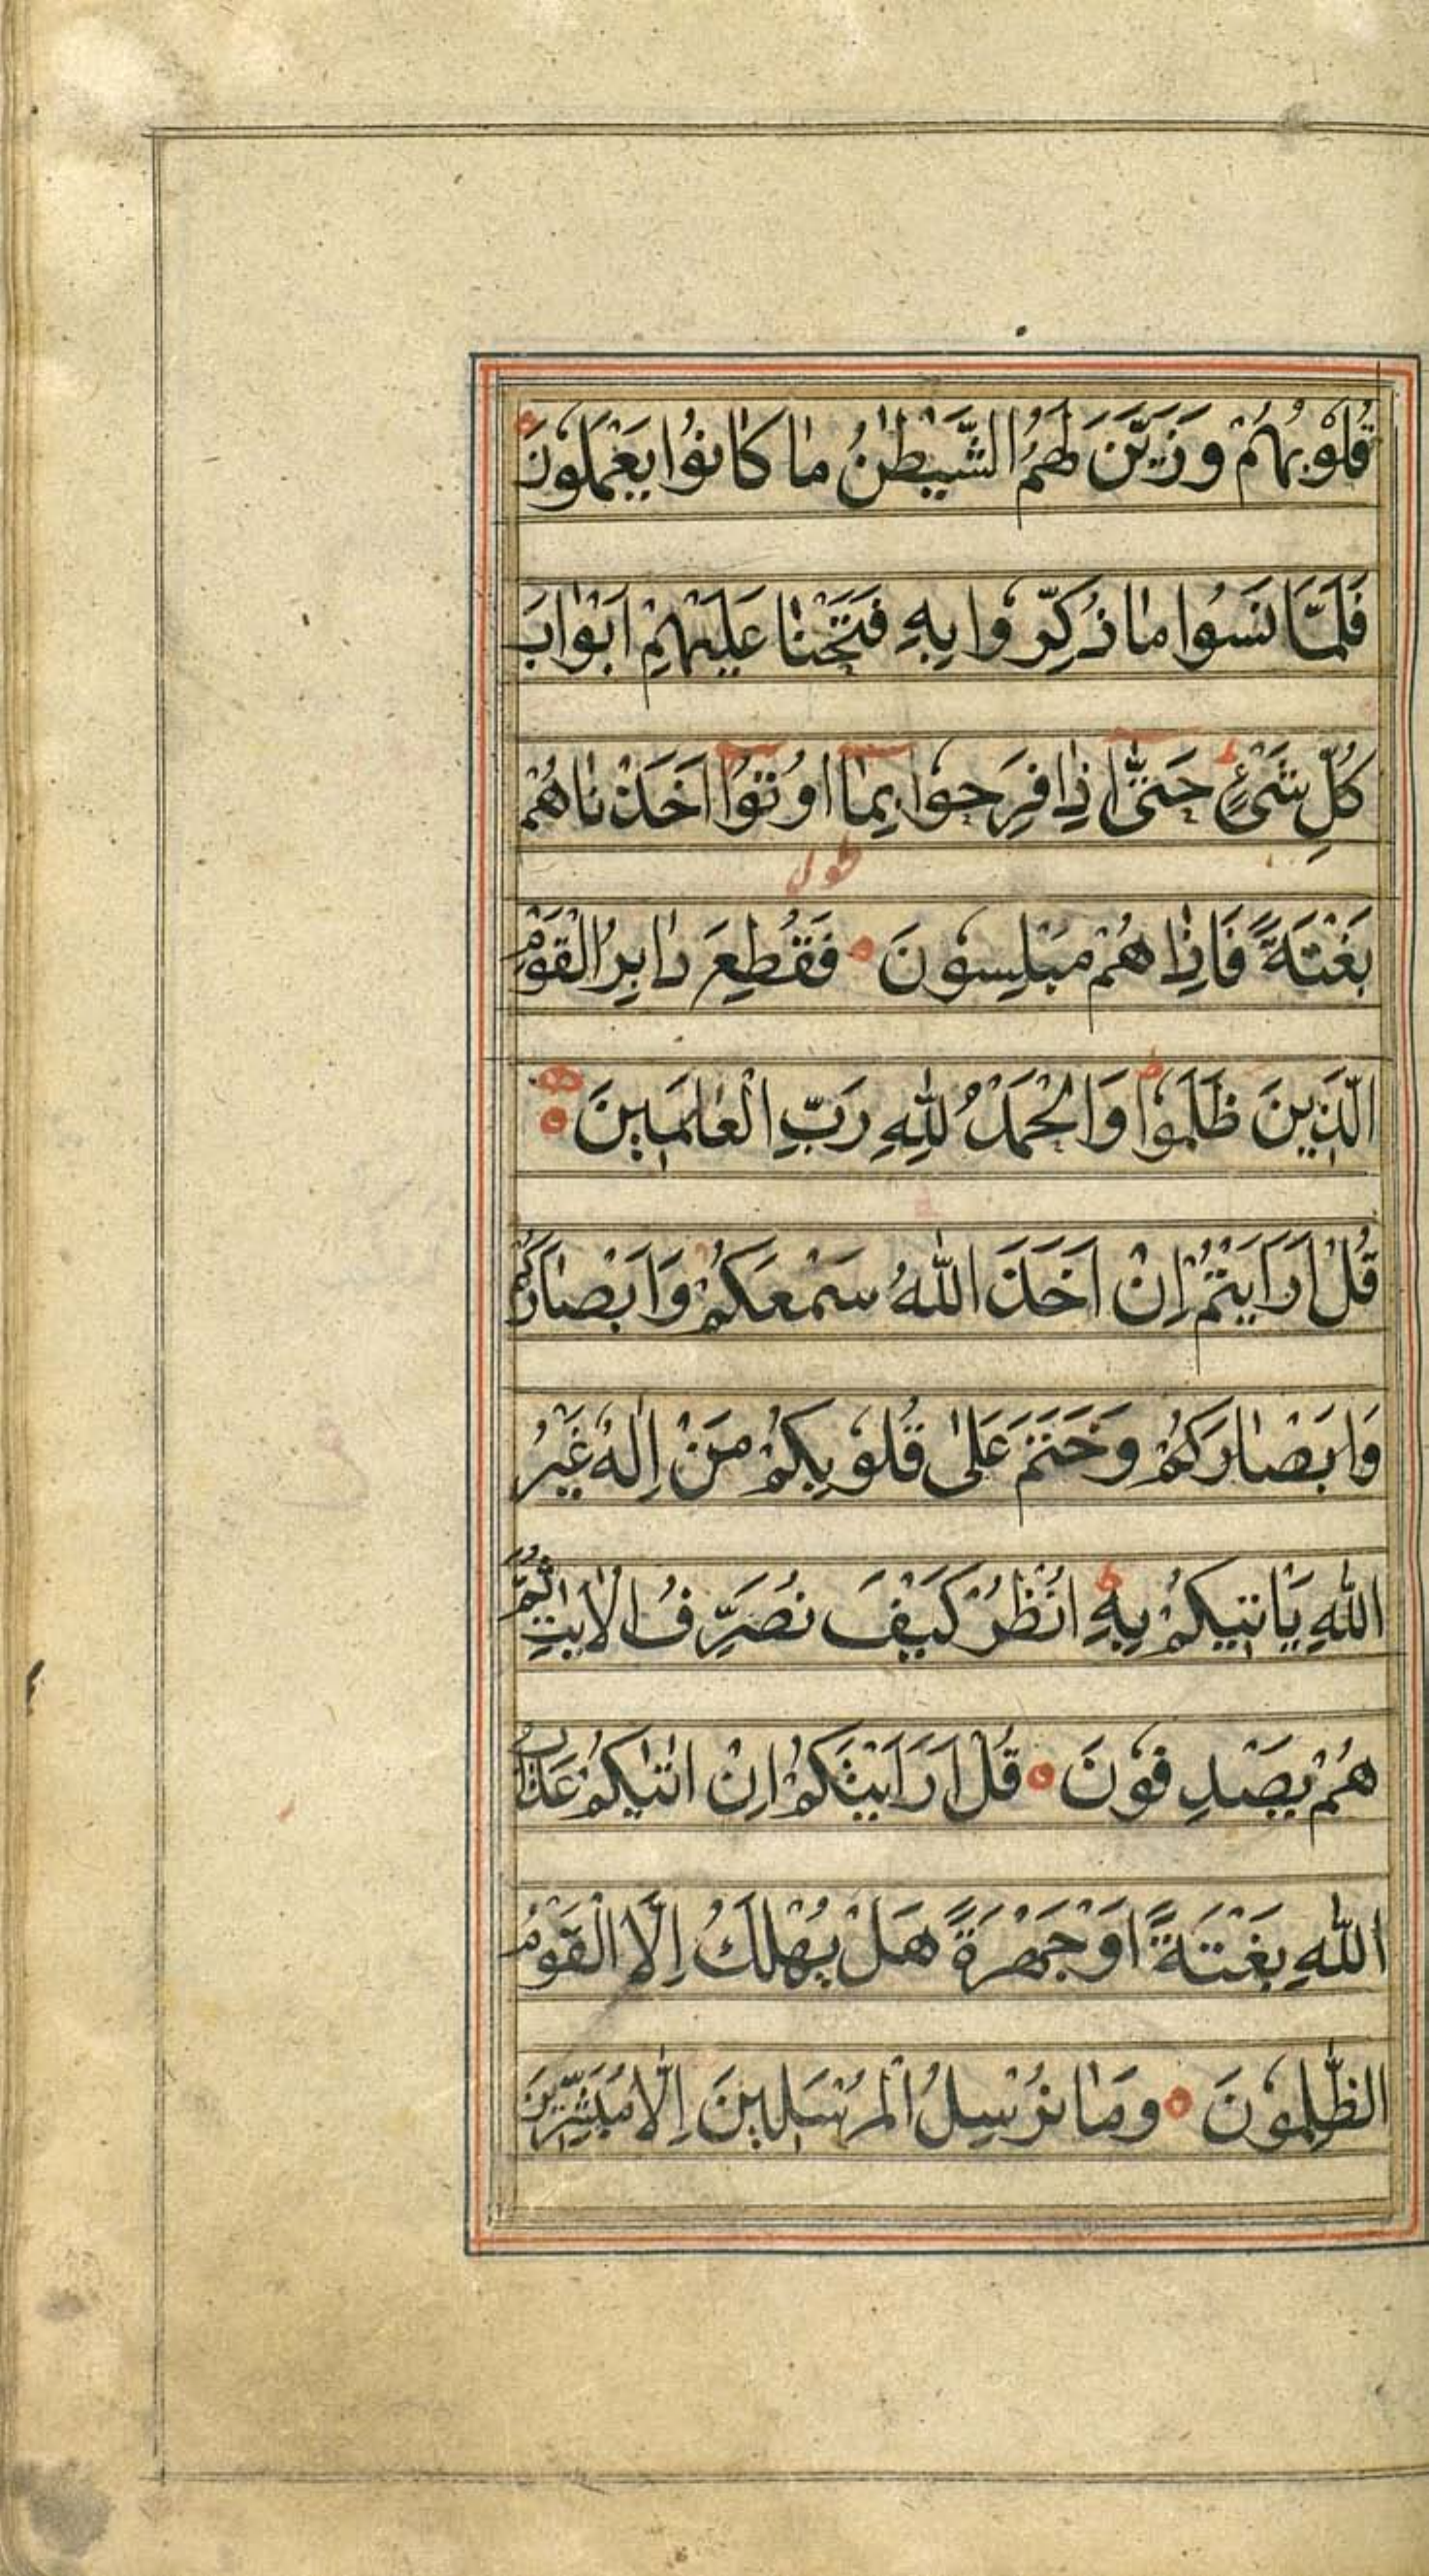 قُلُوْبُهُمْ وَزَيَّنَ لَهُمُ الشَّيْطٰنُ مٰا كٰانُوْا يَعْمَلُوْنَ
فَلَمَّا نَسُوا مٰا ذُكِّرُوْا بِهِ فَتَحْنٰا عَلَيْهِمْ اَبْوٰابَ
كُلِّ شَيْءٍ ط حَتّٰى اِذٰا فَرِحُوْا بِمٰا اُوْتُوْا اَخَذْنٰاهُمْ
طول
بَغْتَةً فَاِذٰا هُمْ مُبْلِسُوْنَ فَقُطِعَ دٰابِرُ الْقَوْمِ
الَّذِيْنَ ظَلَمُوْا ط وَالْحَمْدُ لِلّٰهِ رَبِّ الْعٰالَمِيْنَ
قُلْ اَرَاَيْتُمْ اِنْ اَخَذَ اللّٰهُ سَمْعَكُمْ وَاَبْصٰارَكُمْ
وَاَبْصٰارَكُمْ وَخَتَمَ عَلٰى قُلُوْبِكُمْ مَنْ اِلٰهٌ غَيْرُ
اللّٰهِ يَاْتِيْكُمْ بِهِ ط اُنْظُرْ كَيْفَ نُصَرِّفُ الْاٰيٰتِ ثُمَّ
هُمْ يَصْدِفُوْنَ قُلْ اَرَاَيْتَكُمْ اِنْ اَتٰيكُمْ عَذٰابُ
اللّٰهِ بَغْتَةً اَوْ جَهْرَةً هَلْ يُهْلَكُ اِلَّا الْقَوْمُ
الظّٰلِمُوْنَ وَمٰا نُرْسِلُ الْمُرْسَلِيْنَ اِلَّا مُبَشِّرِيْنَ